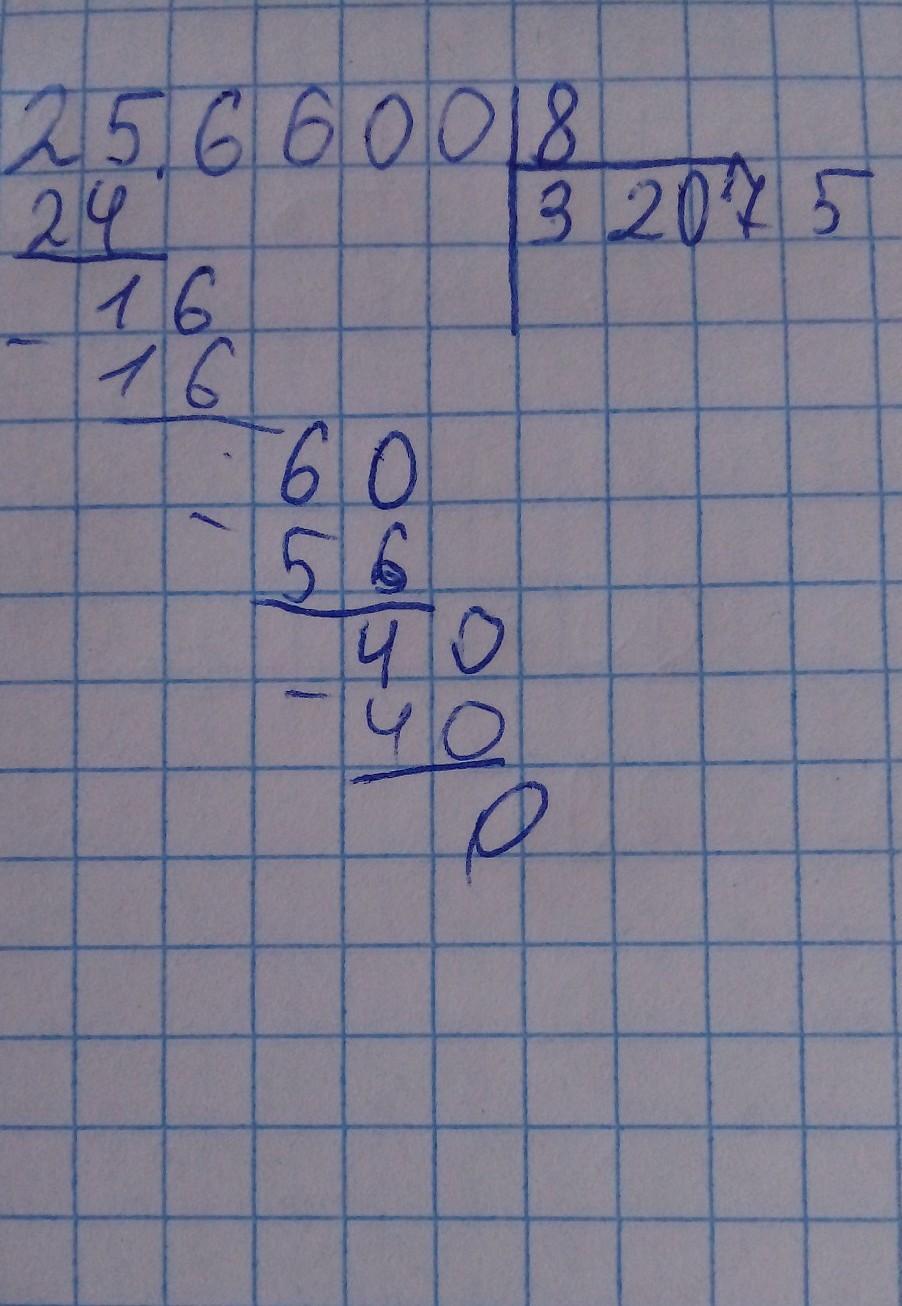 25.6600 8
24 32075
16
- 16
60
- 56
40
- 40
0